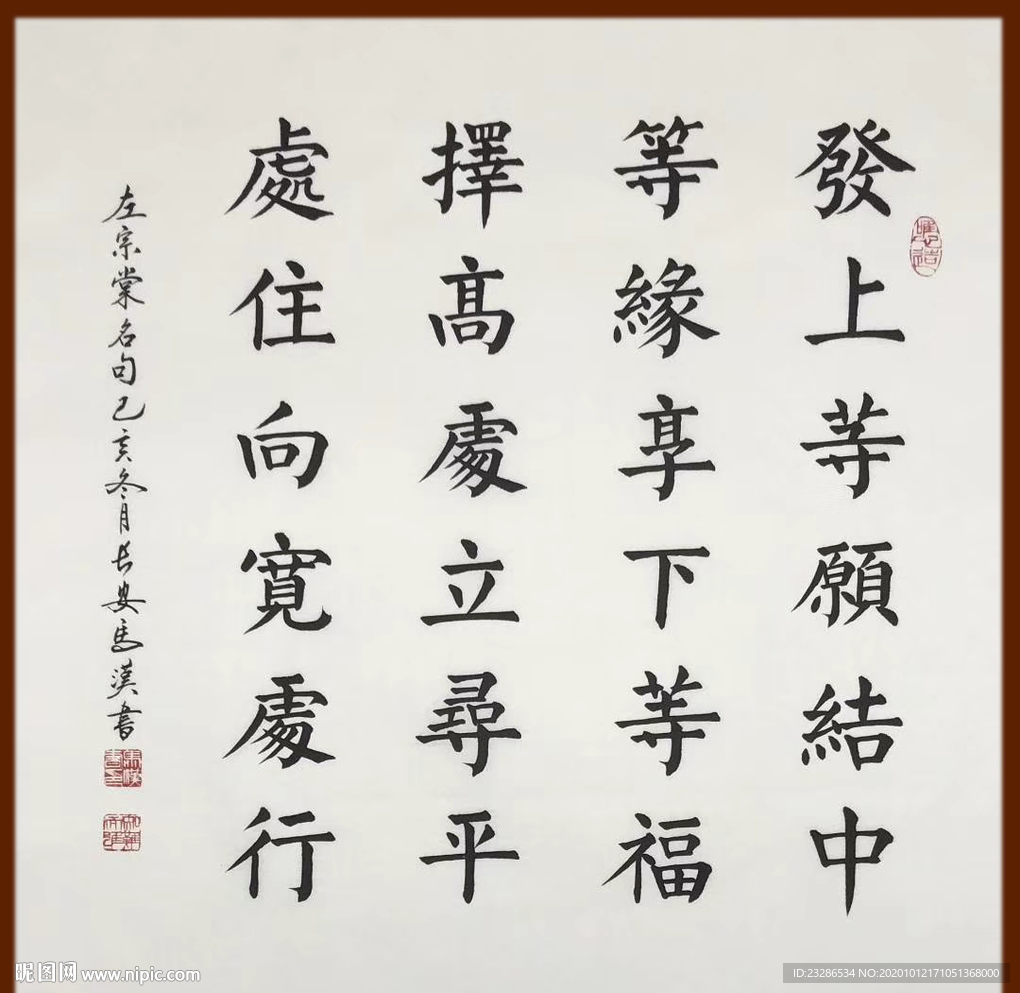 發上等願結中
等緣享下等福
擇高處立尋平
處住向寬處行
左宗棠名句己亥冬月長安馬漢書
昵图网 www.nipic.com
ID:23286534 NO:20201012171051368000